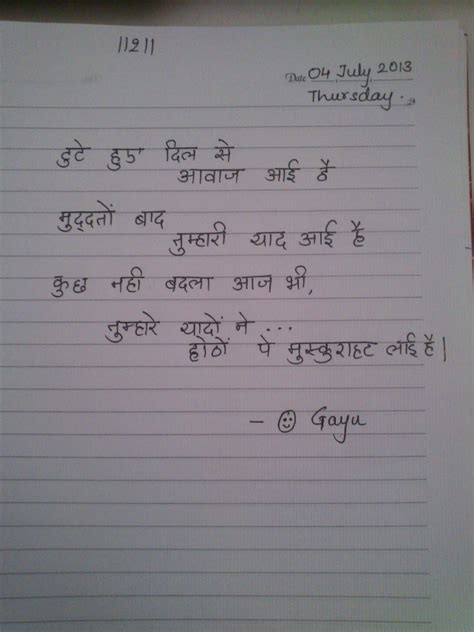 ||2||
Date 04 July 2013
Thursday.
टुटे हुए दिल से
आवाज आई है
मुद्दतों बाद
तुम्हारी याद आई है
कुछ नही बदला आज भी,
तुम्हारे यादों ने ...
होठों पे मुस्कुराहट लाई है|
- ☺ Gayu